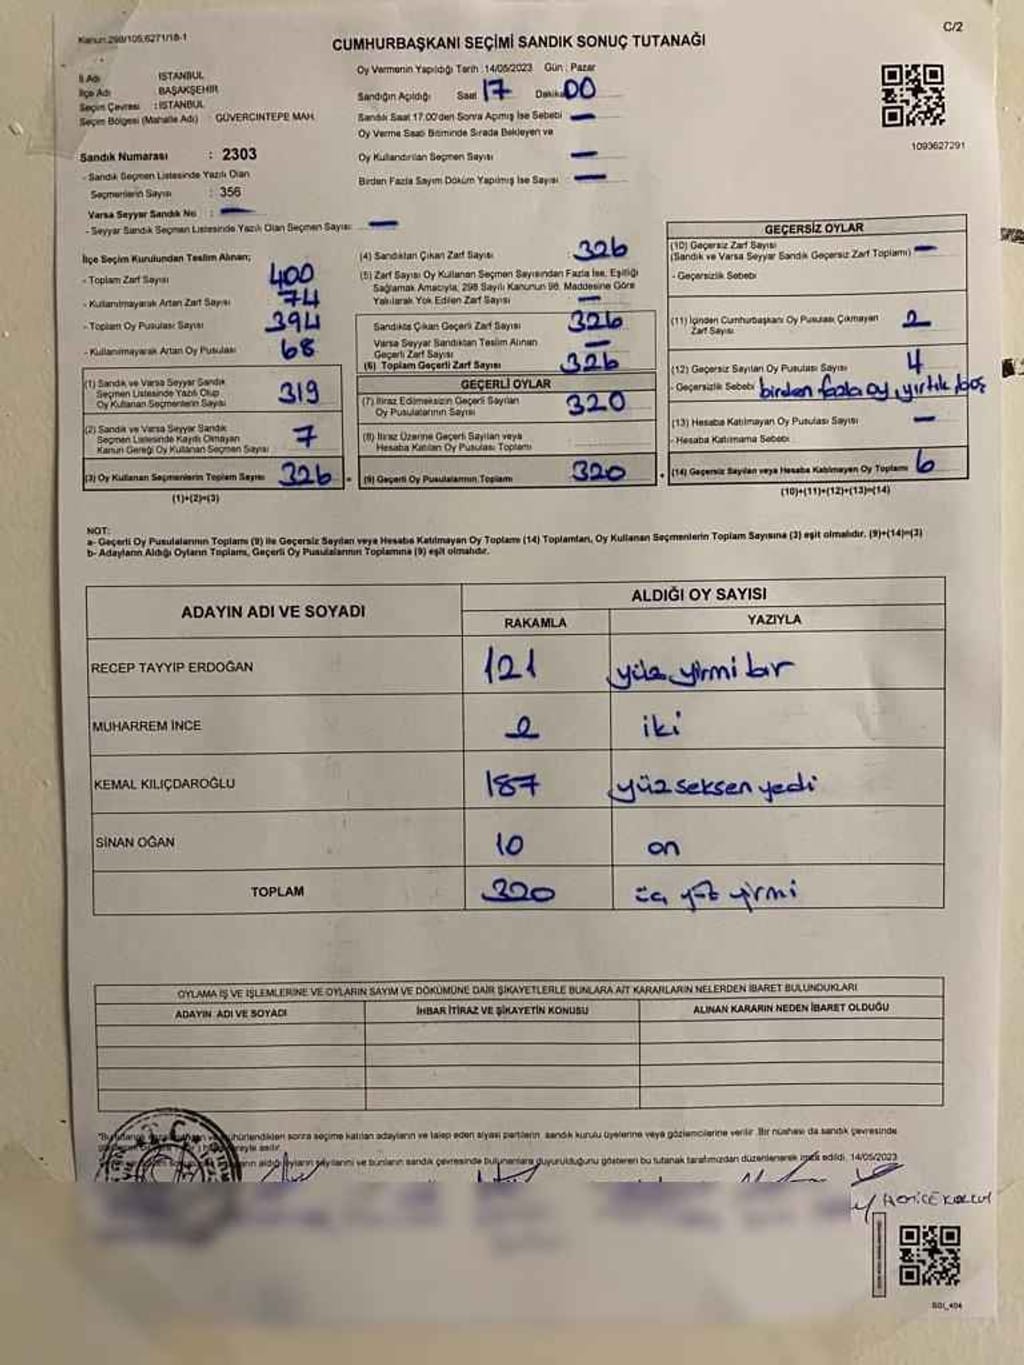 Kanun:298/105;6271/18-1
C/2
CUMHURBAŞKANI SEÇİMİ SANDIK SONUÇ TUTANAĞI
İl Adı : İSTANBUL
İlçe Adı : BAŞAKŞEHİR
Seçim Çevresi : İSTANBUL
Seçim Bölgesi (Mahalle Adı) : GÜVERCİNTEPE MAH.
Sandık Numarası : 2303
- Sandık Seçmen Listesinde Yazılı Olan
Seçmenlerin Sayısı : 356
Varsa Seyyar Sandık No : —
- Seyyar Sandık Seçmen Listesinde Yazılı Olan Seçmen Sayısı : —
Oy Vermenin Yapıldığı Tarih :14/05/2023 Gün : Pazar
Sandığın Açıldığı Saat 17 Dakika 00
Sandık Saat 17.00'den Sonra Açmış İse Sebebi —
Oy Verme Saati Bitiminde Sırada Bekleyen ve
Oy Kullandırılan Seçmen Sayısı —
Birden Fazla Sayım Döküm Yapılmış İse Sayısı : —
1093627291
İlçe Seçim Kurulundan Teslim Alınan;
- Toplam Zarf Sayısı : 400
- Kullanılmayarak Artan Zarf Sayısı : 74
- Toplam Oy Pusulası Sayısı : 394
- Kullanılmayarak Artan Oy Pusulası : 68
(1) Sandık ve Varsa Seyyar Sandık
Seçmen Listesinde Yazılı Olup
Oy Kullanan Seçmenlerin Sayısı : 319
(2) Sandık ve Varsa Seyyar Sandık
Seçmen Listesinde Kaydı Olmayan
Kanun Gereği Oy Kullanan Seçmen Sayısı : 7
(3) Oy Kullanan Seçmenlerin Toplam Sayısı : 326
(1)+(2)=(3)
(4) Sandıktan Çıkan Zarf Sayısı : 326
(5) Zarf Sayısı Oy Kullanan Seçmen Sayısından Fazla İse, Eşitliği
Sağlamak Amacıyla, 298 Sayılı Kanunun 98. Maddesine Göre
Yakılarak Yok Edilen Zarf Sayısı : —
Sandıkta Çıkan Geçerli Zarf Sayısı : 326
Varsa Seyyar Sandıktan Teslim Alınan
Geçerli Zarf Sayısı : —
(6) Toplam Geçerli Zarf Sayısı : 326
GEÇERLİ OYLAR
(7) İtiraz Edilmeksizin Geçerli Sayılan
Oy Pusulalarının Sayısı : 320
(8) İtiraz Üzerine Geçerli Sayılan veya
Hesaba Katılan Oy Pusulası Toplamı :
(9) Geçerli Oy Pusulalarının Toplamı : 320
GEÇERSİZ OYLAR
(10) Geçersiz Zarf Sayısı
(Sandık ve Varsa Seyyar Sandık Geçersiz Zarf Toplamı) : —
- Geçersizlik Sebebi
(11) İçinden Cumhurbaşkanı Oy Pusulası Çıkmayan
Zarf Sayısı : 2
(12) Geçersiz Sayılan Oy Pusulası Sayısı : 4
- Geçersizlik Sebebi birden fazla oy, yırtık, boş
(13) Hesaba Katılmayan Oy Pusulası Sayısı : —
- Hesaba Katılmama Sebebi :
(14) Geçersiz Sayılan veya Hesaba Katılmayan Oy Toplamı 6
(10)+(11)+(12)+(13)=(14)
NOT:
a- Geçerli Oy Pusulalarının Toplamı (9) ile Geçersiz Sayılan veya Hesaba Katılmayan Oy Toplamı (14) Toplamları, Oy Kullanan Seçmenlerin Toplam Sayısına (3) eşit olmalıdır. (9)+(14)=(3)
b- Adayların Aldığı Oyların Toplamı, Geçerli Oy Pusulalarının Toplamına (9) eşit olmalıdır.
ADAYIN ADI VE SOYADI
ALDIĞI OY SAYISI
RAKAMLA YAZIYLA
RECEP TAYYİP ERDOĞAN 121 yüz yirmi bir
MUHARREM İNCE 2 iki
KEMAL KILIÇDAROĞLU 187 yüz seksen yedi
SİNAN OĞAN 10 on
TOPLAM 320 üç yüz yirmi
OYLAMA İŞ VE İŞLEMLERİNE VE OYLARIN SAYIM VE DÖKÜMÜNE DAİR ŞİKAYETLERLE BUNLARA AİT KARARLARIN NELERDEN İBARET BULUNDUKLARI
ADAYIN ADI VE SOYADI İHBAR İTİRAZ VE ŞİKAYETİN KONUSU ALINAN KARARIN NEDEN İBARET OLDUĞU
mühürlendikten sonra seçime katılan adayların ve talep eden siyasi partilerin sandık kurulu üyelerine veya gözlemcilerine verilir. Bir nüshası da sandık çevresinde
aldığı oyların sayılarını ve bunların sandık çevresinde bulunanlara duyurulduğunu gösteren bu tutanak tarafımızdan düzenlenerek imza edildi. 14/05/2023
T.C.